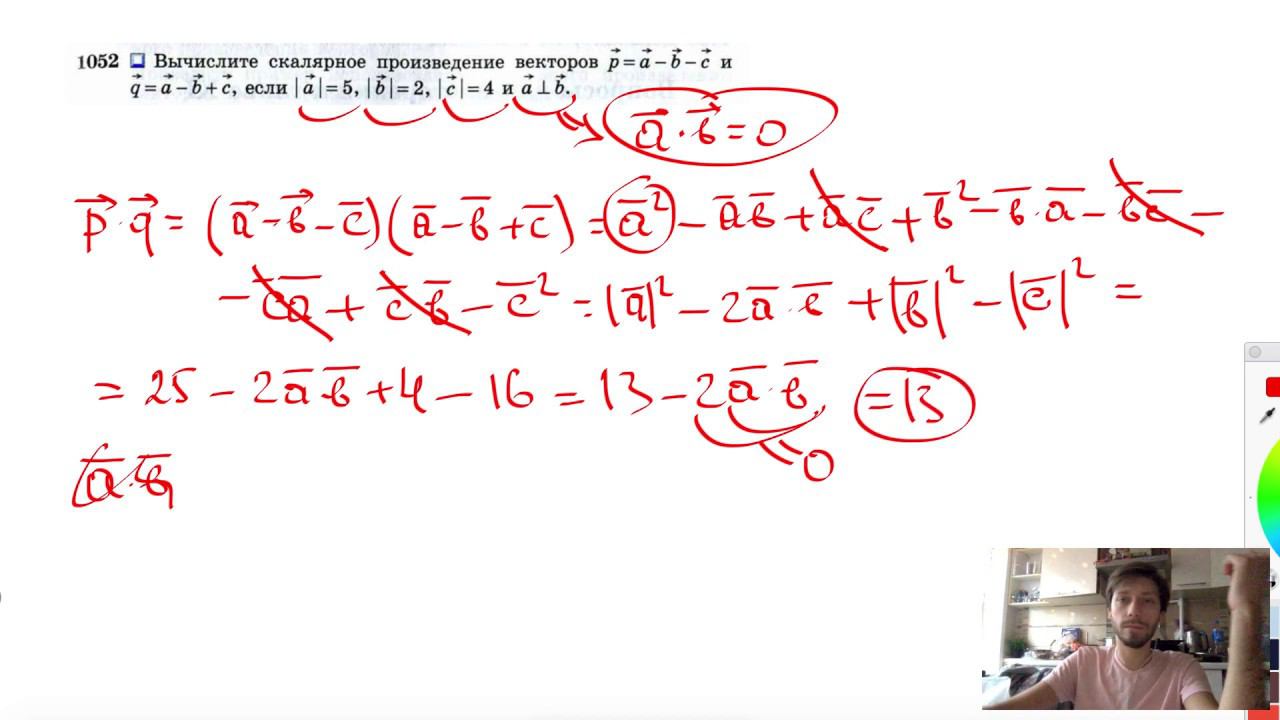 1052 Вычислите скалярное произведение векторов p⃗=a⃗−b⃗−c⃗ и
q⃗=a⃗−b⃗+c⃗, если |a⃗|=5, |b⃗|=2, |c⃗|=4 и a⃗⊥b⃗.
a⃗·b⃗=0
p⃗·q⃗=(a⃗−b⃗−c̅)(a̅−b̅+c̅)=a̅²−a̅b̅+a̅c̅+b̅²−b̅·a̅−b̅c̅−
−c̅a̅+c̅b̅−c̅²=|a̅|²−2a̅·b̅+|b̅|²−|c̅|²=
=25−2a̅b̅+4−16=13−2a̅·b̅ =13
0
a̅·b̅